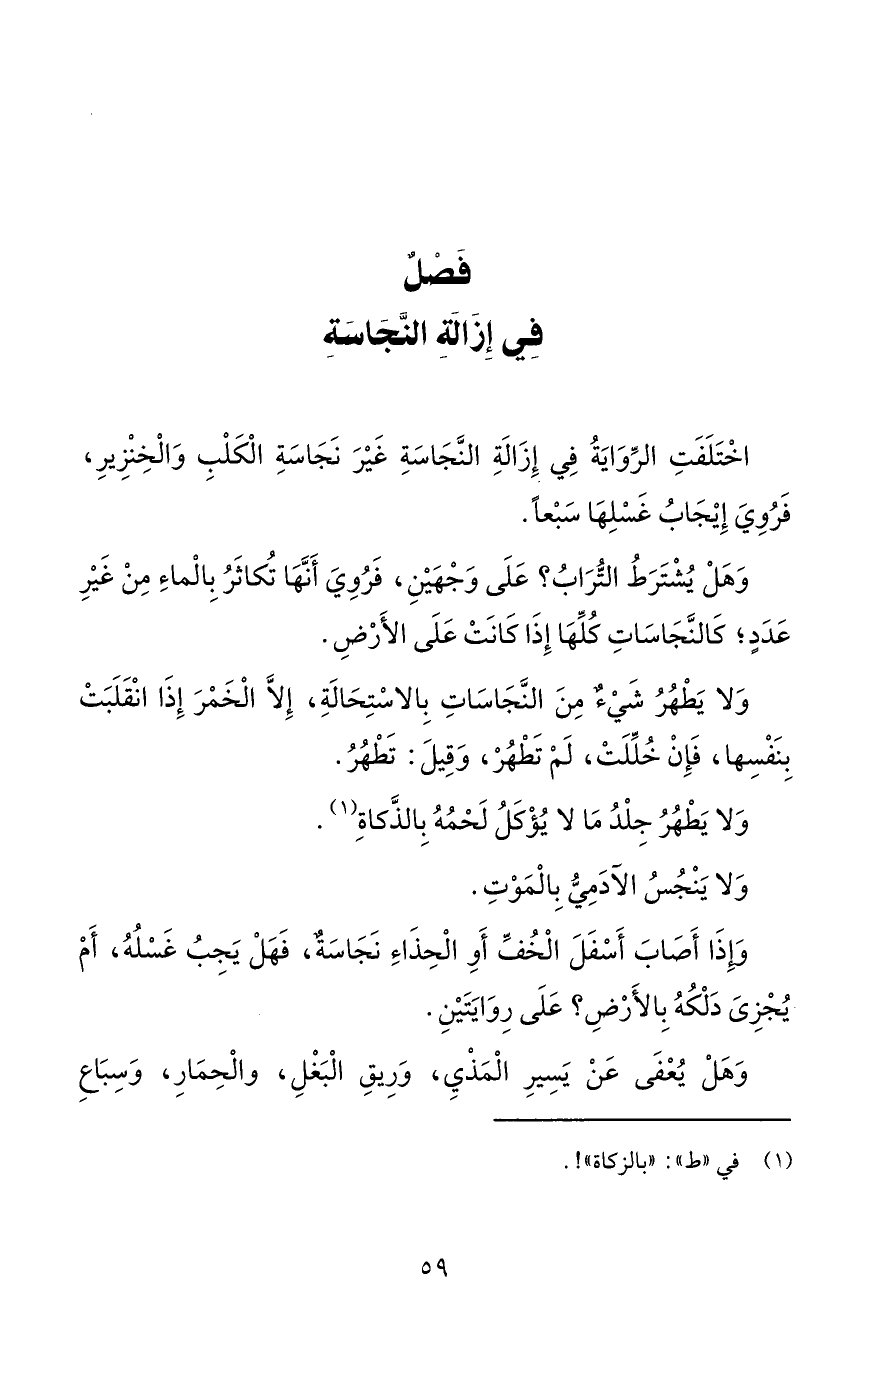 فَصْلٌ
فِي إِزَالَةِ النَّجَاسَةِ
اخْتَلَفَتِ الرِّوَايَةُ فِي إِزَالَةِ النَّجَاسَةِ غَيْرَ نَجَاسَةِ الْكَلْبِ وَالْخِنْزِيرِ،
فَرُوِيَ إِيْجَابُ غَسْلِهَا سَبْعاً.
وَهَلْ يُشْتَرَطُ التُّرَابُ؟ عَلَى وَجْهَيْنِ، فَرُوِيَ أَنَّهَا تُكاثَرُ بِالْماءِ مِنْ غَيْرِ
عَدَدٍ؛ كَالنَّجَاسَاتِ كُلِّهَا إِذَا كَانَتْ عَلَى الأَرْضِ.
وَلا يَطْهُرُ شَيْءٌ مِنَ النَّجَاسَاتِ بِالاسْتِحَالَةِ، إِلاَّ الْخَمْرَ إِذَا انْقَلَبَتْ
بِنَفْسِها، فَإِنْ خُلِّلَتْ، لَمْ تَطْهُرْ، وَقِيلَ: تَطْهُرُ.
وَلا يَطْهُرُ جِلْدُ مَا لا يُؤْكَلُ لَحْمُهُ بِالذَّكاةِ(١).
وَلا يَنْجُسُ الآدَمِيُّ بِالْمَوْتِ.
وَإِذَا أَصَابَ أَسْفَلَ الْخُفِّ أَوِ الْحِذَاءِ نَجَاسَةٌ، فَهَلْ يَجِبُ غَسْلُهُ، أَمْ
يُجْزِىَ دَلْكُهُ بِالأَرْضِ؟ عَلَى رِوَايَتَيْنِ.
وَهَلْ يُعْفَى عَنْ يَسِيرِ الْمَذْيِ، وَرِيقِ الْبَغْلِ، والْحِمَارِ، وَسِبَاعِ
(١) في «ط»: «بالزكاة»!.
٥٩